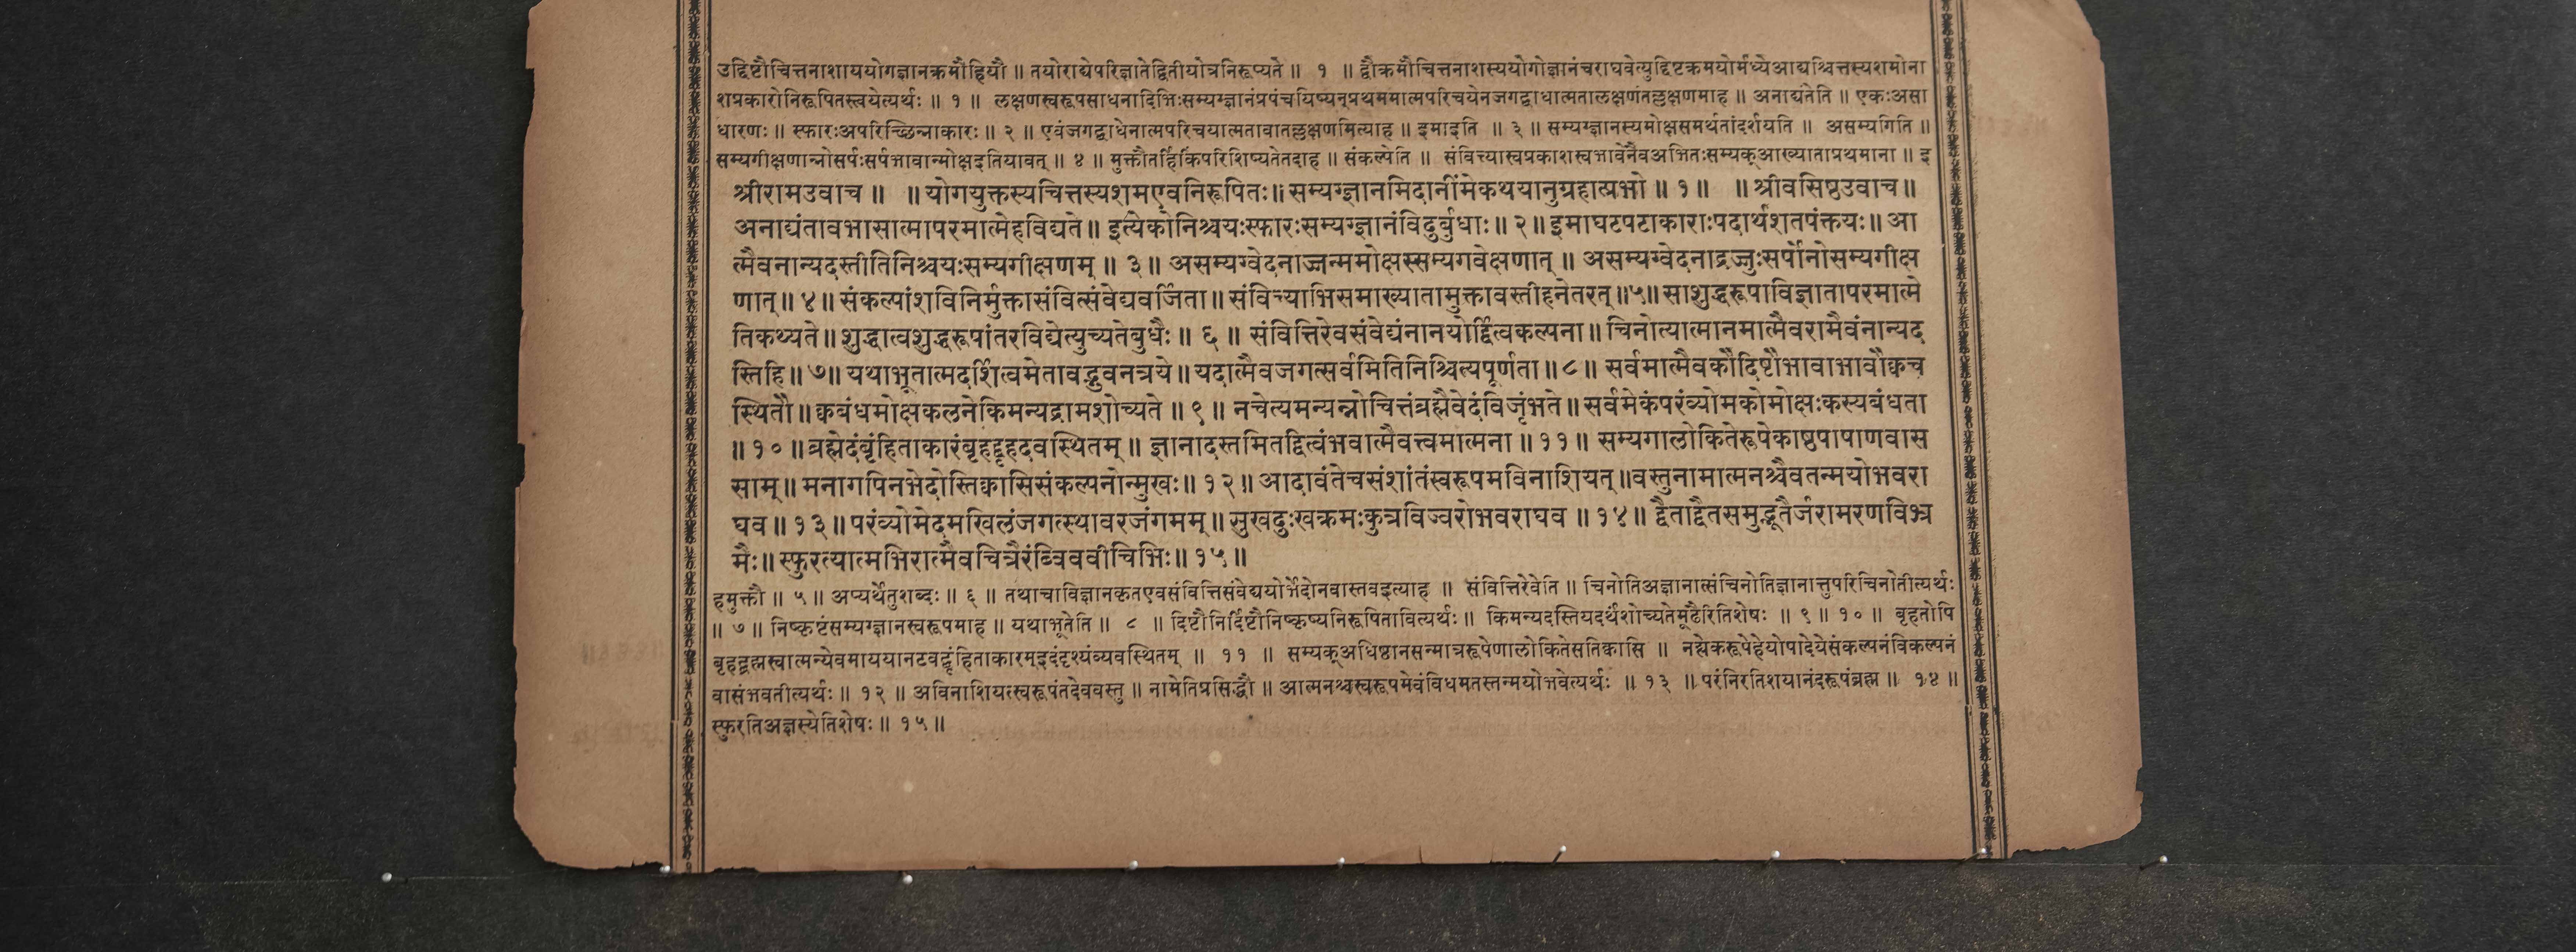 उद्दिष्टौचित्तनाशाययोगज्ञानक्रमौहियौ ॥ तयोराद्येपरिज्ञातेद्वितीयोत्रनिरूप्यते ॥ १ ॥ द्वौक्रमौचित्तनाशस्ययोगोज्ञानंचराघवेत्युद्दिष्टक्रमयोर्मध्येआद्यश्चित्तस्यशमोना
शप्रकारोनिरूपितस्त्वयेत्यर्थः ॥ १ ॥ लक्षणस्वरूपसाधनादिभिःसम्यग्ज्ञानंप्रपंचयिष्यन्प्रथममात्मपरिचयेनजगद्बाधात्मतालक्षणंतल्लक्षणमाह ॥ अनाद्यंतेति ॥ एकःअसा
धारणः ॥ स्फारःअपरिच्छिन्नाकारः ॥ २ ॥ एवंजगद्बाधेनात्मपरिचयात्मतावातल्लक्षणमित्याह ॥ इमाइति ॥ ३ ॥ सम्यग्ज्ञानस्यमोक्षसमर्थतांदर्शयति ॥ असम्यगिति ॥
सम्यगीक्षणान्नोसर्पःसर्पभावान्मोक्षइतियावत् ॥ ४ ॥ मुक्तौतर्हिकिंपरिशिष्यतेतदाह ॥ संकल्पेति ॥ संवित्त्यास्वप्रकाशस्वभावेनैवअभितःसम्यक्आख्याताप्रथमाना ॥ इ
श्रीरामउवाच ॥ ॥ योगयुक्तस्यचित्तस्यशमएवनिरूपितः ॥ सम्यग्ज्ञानमिदानींमेकथयानुग्रहात्प्रभो ॥ १ ॥ ॥ श्रीवसिष्ठउवाच ॥
अनाद्यंतावभासात्मापरमात्मेहविद्यते ॥ इत्येकोनिश्चयःस्फारःसम्यग्ज्ञानंविदुर्बुधाः ॥ २ ॥ इमाघटपटाकाराःपदार्थशतपंक्तयः ॥ आ
त्मैवनान्यदस्तीतिनिश्चयःसम्यगीक्षणम् ॥ ३ ॥ असम्यग्वेदनाज्जन्ममोक्षस्सम्यगवेक्षणात् ॥ असम्यग्वेदनाद्रज्जुःसर्पोनोसम्यगीक्ष
णात् ॥ ४ ॥ संकल्पांशविनिर्मुक्तासंवित्संवेद्यवर्जिता ॥ संवित्त्याभिसमाख्यातामुक्तावस्तीहनेतरत् ॥ ५ ॥ साशुद्धरूपाविज्ञातापरमात्मे
तिकथ्यते ॥ शुद्धात्वशुद्धरूपांतरविद्येत्युच्यतेबुधैः ॥ ६ ॥ संवित्तिरेवसंवेद्यंनानयोर्द्वित्वकल्पना ॥ चिनोत्यात्मानमात्मैवरामैवंनान्यद
स्तिहि ॥ ७ ॥ यथाभूतात्मदर्शित्वमेतावद्भुवनत्रये ॥ यदात्मैवजगत्सर्वमितिनिश्चित्यपूर्णता ॥ ८ ॥ सर्वमात्मैवकौदिष्टौभावाभावौक्वच
स्थितौ ॥ क्वबंधमोक्षकलनेकिमन्यद्रामशोच्यते ॥ ९ ॥ नचेत्यमन्यन्नोचित्तंब्रह्मैवेदंविजृंभते ॥ सर्वमेकंपरंव्योमकोमोक्षःकस्यबंधता
॥ १० ॥ ब्रह्मेदंबृंहिताकारंबृहद्बृहदवस्थितम् ॥ ज्ञानादस्तमितद्वित्वंभवात्मैवत्त्वमात्मना ॥ ११ ॥ सम्यगालोकितेरूपेकाष्ठपाषाणवास
साम् ॥ मनागपिनभेदोस्तिक्वासिसंकल्पनोन्मुखः ॥ १२ ॥ आदावंतेचसंशांतंस्वरूपमविनाशियत् ॥ वस्तुनामात्मनश्चैवतन्मयोभवरा
घव ॥ १३ ॥ परंव्योमेदमखिलंजगत्स्थावरजंगमम् ॥ सुखदुःखक्रमःकुत्रविज्वरोभवराघव ॥ १४ ॥ द्वैताद्वैतसमुद्भूतैर्जरामरणविभ्र
मैः ॥ स्फुरत्यात्मभिरात्मैवचित्रैरंब्विववीचिभिः ॥ १५ ॥
हमुक्तौ ॥ ५ ॥ अप्यर्थेतुशब्दः ॥ ६ ॥ तथाचाविज्ञानकृतएवसंवित्तिसंवेद्ययोर्भेदोनवास्तवइत्याह ॥ संवित्तिरेवेति ॥ चिनोतिअज्ञानात्संचिनोतिज्ञानात्तुपरिचिनोतीत्यर्थः
॥ ७ ॥ निष्कृष्टंसम्यग्ज्ञानस्वरूपमाह ॥ यथाभूतेति ॥ ८ ॥ दिष्टौनिर्दिष्टौनिष्कृष्यनिरूपितावित्यर्थः ॥ किमन्यदस्तियदर्थंशोच्यतेमूढैरितिशेषः ॥ ९ ॥ १० ॥ बृहतोपि
बृहद्ब्रह्मस्वात्मन्येवमाययानटवद्बृंहिताकारम्इदंदृश्यंव्यवस्थितम् ॥ ११ ॥ सम्यक्अधिष्ठानसन्मात्ररूपेणालोकितेसतिक्वासि ॥ नह्येकरूपेहेयोपादेयेसंकल्पनंविकल्पनं
वासंभवतीत्यर्थः ॥ १२ ॥ अविनाशियत्स्वरूपंतदेववस्तु ॥ नामेतिप्रसिद्धौ ॥ आत्मनश्चस्वरूपमेवंविधमतस्तन्मयोभवेत्यर्थः ॥ १३ ॥ परंनिरतिशयानंदरूपंब्रह्म ॥ १४ ॥
स्फुरतिअज्ञस्येतिशेषः ॥ १५ ॥